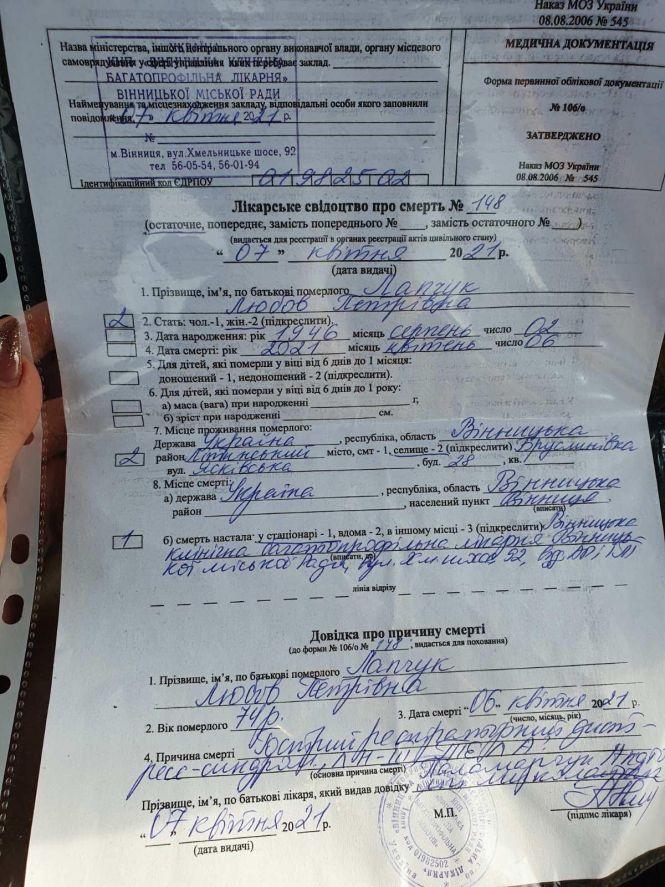 Наказ МОЗ України
08.08.2006 № 545
Назва міністерства, іншого центрального органу виконавчої влади, органу місцевого
самоврядування у сфері управління якого перебуває заклад.
БАГАТОПРОФІЛЬНА ЛІКАРНЯ»
ВІННИЦЬКОЇ МІСЬКОЇ РАДИ
Найменування та місцезнаходження закладу, відповідальні особи якого заповнили
повідомлення.
«07» квітня 2021 р.
№
м.Вінниця, вул.Хмельницьке шосе, 92
тел 56-05-54, 56-01-94
Ідентифікаційний код ЄДРПОУ 01982502
МЕДИЧНА ДОКУМЕНТАЦІЯ
Форма первинної облікової документації
№ 106/о
ЗАТВЕРДЖЕНО
Наказ МОЗ України
08.08.2006 № 545
Лікарське свідоцтво про смерть № 148
(остаточне, попереднє, замість попереднього № , замість остаточного № )
(видається для реєстрації в органах реєстрації актів цивільного стану)
“ 07 ” квітня 2021 р.
(дата видачі)
1. Прізвище, ім’я, по батькові померлого Лапчук
Любов Петрівна
2 2. Стать: чол.-1, жін.-2 (підкреслити).
3. Дата народження: рік 1946 місяць серпень число 02
4. Дата смерті: рік 2021 місяць квітень число 06
5. Для дітей, які померли у віці від 6 днів до 1 місяця:
доношений - 1, недоношений - 2 (підкреслити).
6. Для дітей, які померли у віці від 6 днів до 1 року:
а) маса (вага) при народженні г,
б) зріст при народженні см.
7. Місце проживання померлого:
Держава Україна , республіка, область Вінницька
2 район місто, смт - 1, селище - 2 (підкреслити) Бруслинівка
вул. Ясківська , буд. 28 , кв.
8. Місце смерті:
а) держава Україна , республіка, область Вінницька
район населений пункт Вінниця
(вписати)
1 б) смерть настала: у стаціонарі - 1, вдома - 2, в іншому місці - 3 (підкреслити) Вінницька
клінічна багатопрофільна лікарня Вінниць-
(вписати, де)
кої міської ради, вул.
лінія відрізу
Довідка про причину смерті
(до форми № 106/о № 148 , видається для поховання)
1. Прізвище, ім’я, по батькові померлого Лапчук
Любов Петрівна
2. Вік померлого 74 р. 3. Дата смерті “06” квітня 2021 р.
(число, місяць, рік)
4. Причина смерті Гострий респіраторний дист-
ресс-синдром,
(основна причина смерті)
Прізвище, ім’я, по батькові лікаря, який видав довідку Паламарчук
“07” квітня 2021 р.
(дата видачі)
М.П.
(підпис лікаря)
01982502